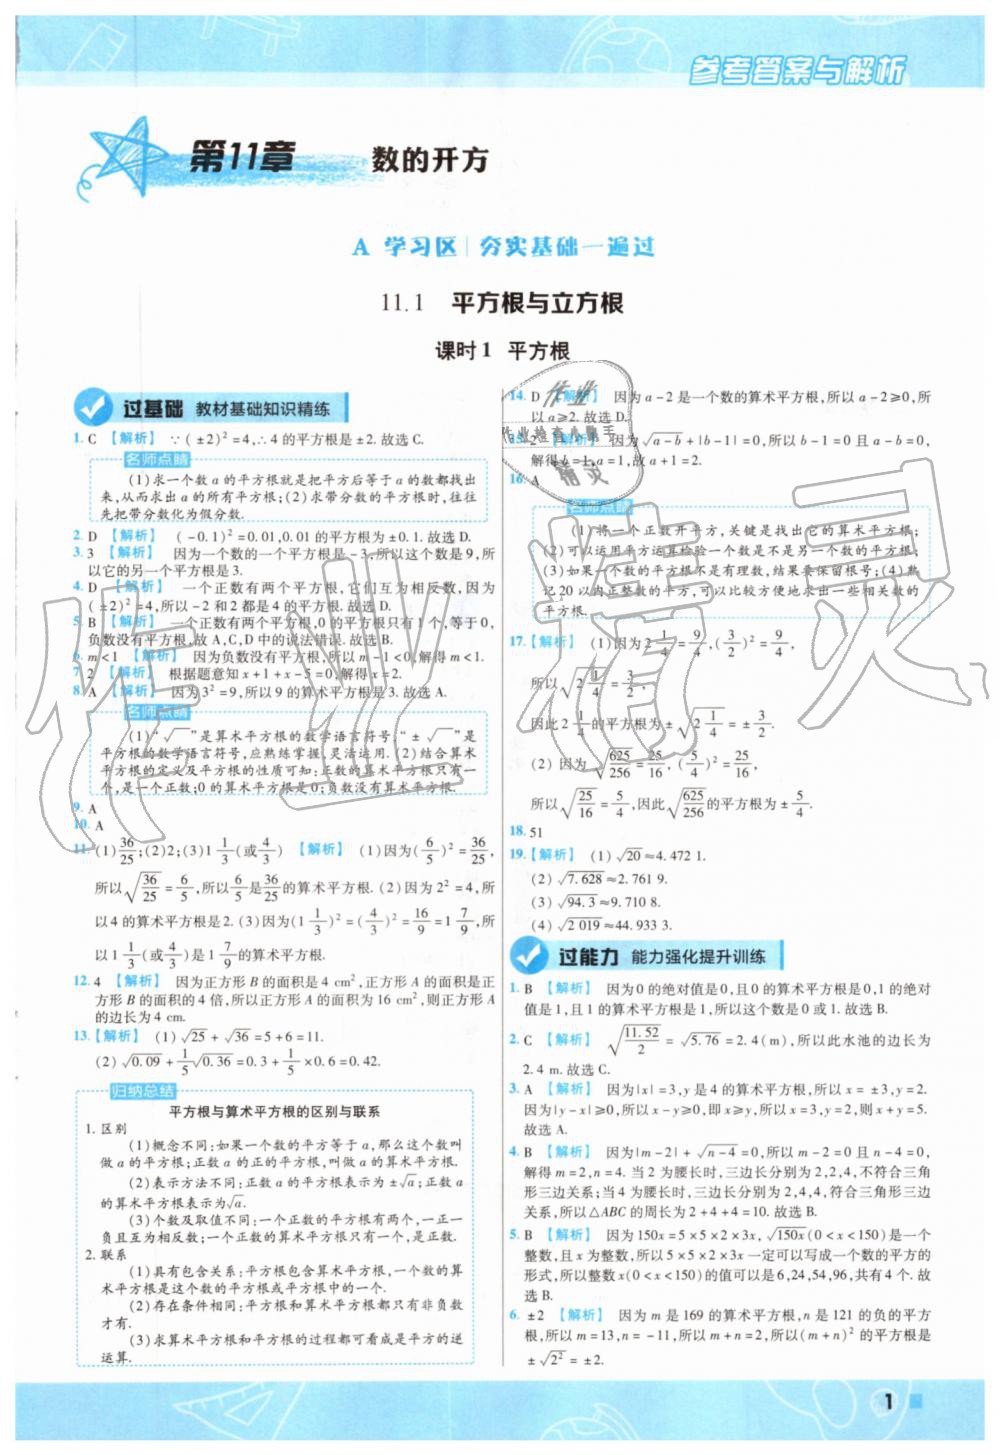 参考答案与解析
第11章 数的开方
A 学习区 | 夯实基础一遍过
11.1 平方根与立方根
课时1 平方根
过基础 教材基础知识精练
1. C 【解析】 ∵(±2)²=4,∴4的平方根是±2.故选C.
名师点睛
(1)求一个数a的平方根就是把平方后等于a的数都找出
来,从而求出a的所有平方根;(2)求带分数的平方根时,往往
先把带分数化为假分数.
2. D 【解析】 (-0.1)²=0.01,0.01的平方根为±0.1.故选D.
3. 3 【解析】 因为一个数的一个平方根是-3,所以这个数是9,所
以它的另一个平方根是3.
4. D 【解析】 一个正数有两个平方根,它们互为相反数,因为
(±2)²=4,所以-2和2都是4的平方根.故选D.
5. B 【解析】 一个正数有两个平方根,0的平方根只有1个,等于0,
负数没有平方根,故A,C,D中的说法错误.故选B.
6. m<1 【解析】 因为负数没有平方根,所以m-1<0,解得m<1.
7. 2 【解析】 根据题意知x+1+x-5=0,解得x=2.
8. A 【解析】 因为3²=9,所以9的算术平方根是3.故选A.
名师点睛
(1)“√ ”是算术平方根的数学语言符号,“±√ ”是
平方根的数学语言符号,应熟练掌握,灵活运用.(2)结合算术
平方根的定义及平方根的性质可知:正数的算术平方根只有一
个,是一个正数;0的算术平方根是0;负数没有算术平方根.
9. A
10. A
11. (1)36/25;(2)2;(3)1 1/3(或4/3) 【解析】 (1)因为(6/5)²=36/25,
所以√(36/25)=6/5,所以6/5是36/25的算术平方根.(2)因为2²=4,所
以4的算术平方根是2.(3)因为(1 1/3)²=(4/3)²=16/9=1 7/9,所
以1 1/3(或4/3)是1 7/9的算术平方根.
12. 4 【解析】 因为正方形B的面积是4 cm²,正方形A的面积是正
方形B的面积的4倍,所以正方形A的面积为16 cm²,则正方形A
的边长为4 cm.
13. 【解析】 (1)√25+√36=5+6=11.
(2)√0.09+1/5√0.36=0.3+1/5×0.6=0.42.
归纳总结
平方根与算术平方根的区别与联系
1. 区别
(1)概念不同:如果一个数的平方等于a,那么这个数叫
做a的平方根;正数a的正的平方根,叫做a的算术平方根.
(2)表示方法不同:正数a的平方根表示为±√a;正数a
的算术平方根表示为√a.
(3)个数及取值不同:一个正数的平方根有两个,一正一
负且互为相反数;一个正数的算术平方根只有一个,是正数.
2. 联系
(1)具有包含关系:平方根包含算术平方根,一个数的算
术平方根是这个数的平方根或平方根中的一个.
(2)存在条件相同:平方根和算术平方根都只有非负数
才有.
(3)求算术平方根和平方根的过程都可看成是平方的逆
运算.
14. D 【解析】 因为a-2是一个数的算术平方根,所以a-2≥0,所
以a≥2.故选D.
15. 2 【解析】 因为√(a-b)+|b-1|=0,所以b-1=0且a-b=0,
解得b=1,a=1,故a+1=2.
16. A
名师点睛
(1)将一个正数开平方,关键是找出它的算术平方根;
(2)可以运用平方运算检验一个数是不是另一个数的平方根;
(3)如果一个数的平方根不是有理数,结果要保留根号;(4)熟
记20以内正整数的平方,可以比较方便地求出一些相关数的
平方根.
17. 【解析】 (1)因为2 1/4=9/4,(3/2)²=9/4,
所以√(2 1/4)=3/2,
因此2 1/4的平方根为±√(2 1/4)=±3/2.
(2)因为√(625/256)=25/16,(5/4)²=25/16,
所以√(25/16)=5/4,因此√(625/256)的平方根为±5/4.
18. 51
19. 【解析】 (1)√20≈4.472 1.
(2)√7.628≈2.761 9.
(3)√94.3≈9.710 8.
(4)√2 019≈44.933 3.
过能力 能力强化提升训练
1. B 【解析】 因为0的绝对值是0,且0的算术平方根是0,1的绝对
值是1,且1的算术平方根是1,所以这个数是0或1.故选B.
2. C 【解析】 √(11.52/2)=√5.76=2.4(m),所以此水池的边长为
2.4 m.故选C.
3. A 【解析】 因为|x|=3,y是4的算术平方根,所以x=±3,y=2.
因为|y-x|≥0,所以x-y≥0,即x≥y,所以x=3,y=2,则x+y=5.
故选A.
4. B 【解析】 因为|m-2|+√(n-4)=0,所以m-2=0且n-4=0,
解得m=2,n=4.当2为腰长时,三边长分别为2,2,4,不符合三角
形三边关系;当4为腰长时,三边长分别为2,4,4,符合三角形三边
关系,所以△ABC的周长为2+4+4=10.故选B.
5. B 【解析】 因为150x=5×5×2×3x,√150x(0<x<150)是一个
整数,且x为整数,所以5×5×2×3x一定可以写成一个数的平方的
形式,所以整数x(0<x<150)的值可以是6,24,54,96,共有4个.故
选B.
6. ±2 【解析】 因为m是169的算术平方根,n是121的负的平方
根,所以m=13,n=-11,所以m+n=2,所以(m+n)²的平方根是
±√2²=±2.
1
作业
作业检查小助手
精灵
作业精灵